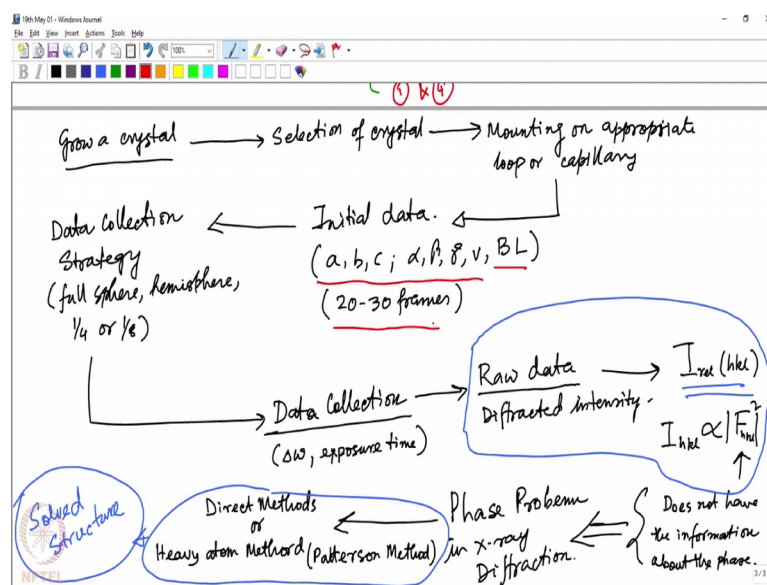 19th May 01 - Windows Journal
File Edit View Insert Actions Tools Help
100%
B I
① & ④
Grow a crystal → Selection of crystal → Mounting on appropriate
loop or capillary
Initial data.
(a, b, c; α, β, γ, v, BL)
(20-30 frames)
Data Collection
Strategy
(full sphere, hemisphere,
1/4 or 1/8)
Data Collection
(Δω, exposure time)
Raw data → I rel (hkl)
Diffracted intensity.
I hkl ∝ |F hkl|²
Does not have
the information
about the phase.
Phase Probem
in X-ray
Diffraction.
Direct Methods
or
Heavy atom Method (Patterson Method)
Solved
Structure
NPTEL
3/3